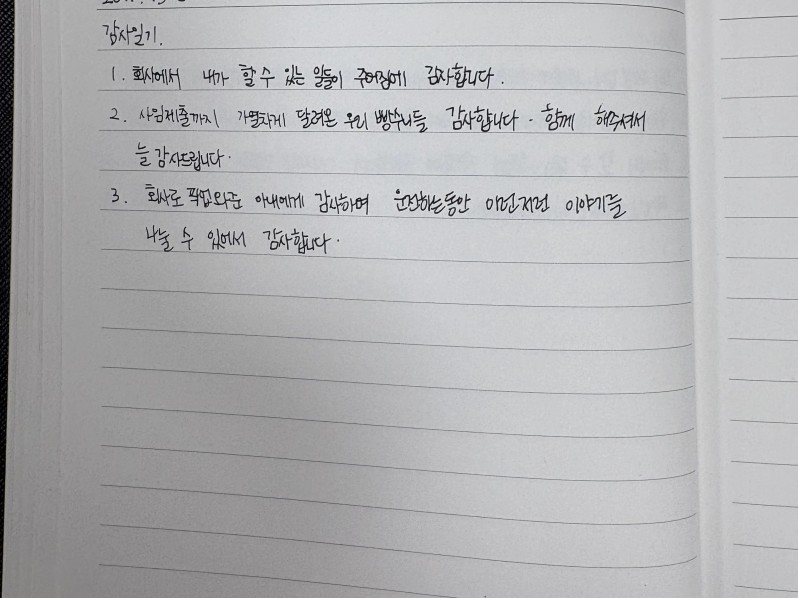 감사일기.
1. 회사에서 내가 할 수 있는 일들이 주어짐에 감사합니다.
2. 까지 가열차게 달려온 우리 감사합니다. 함께 해주셔서
늘 감사드립니다.
3. 회사로 픽업와준 아내에게 감사하며 운전하는동안 이런저런 이야기를
나눌 수 있어서 감사합니다.